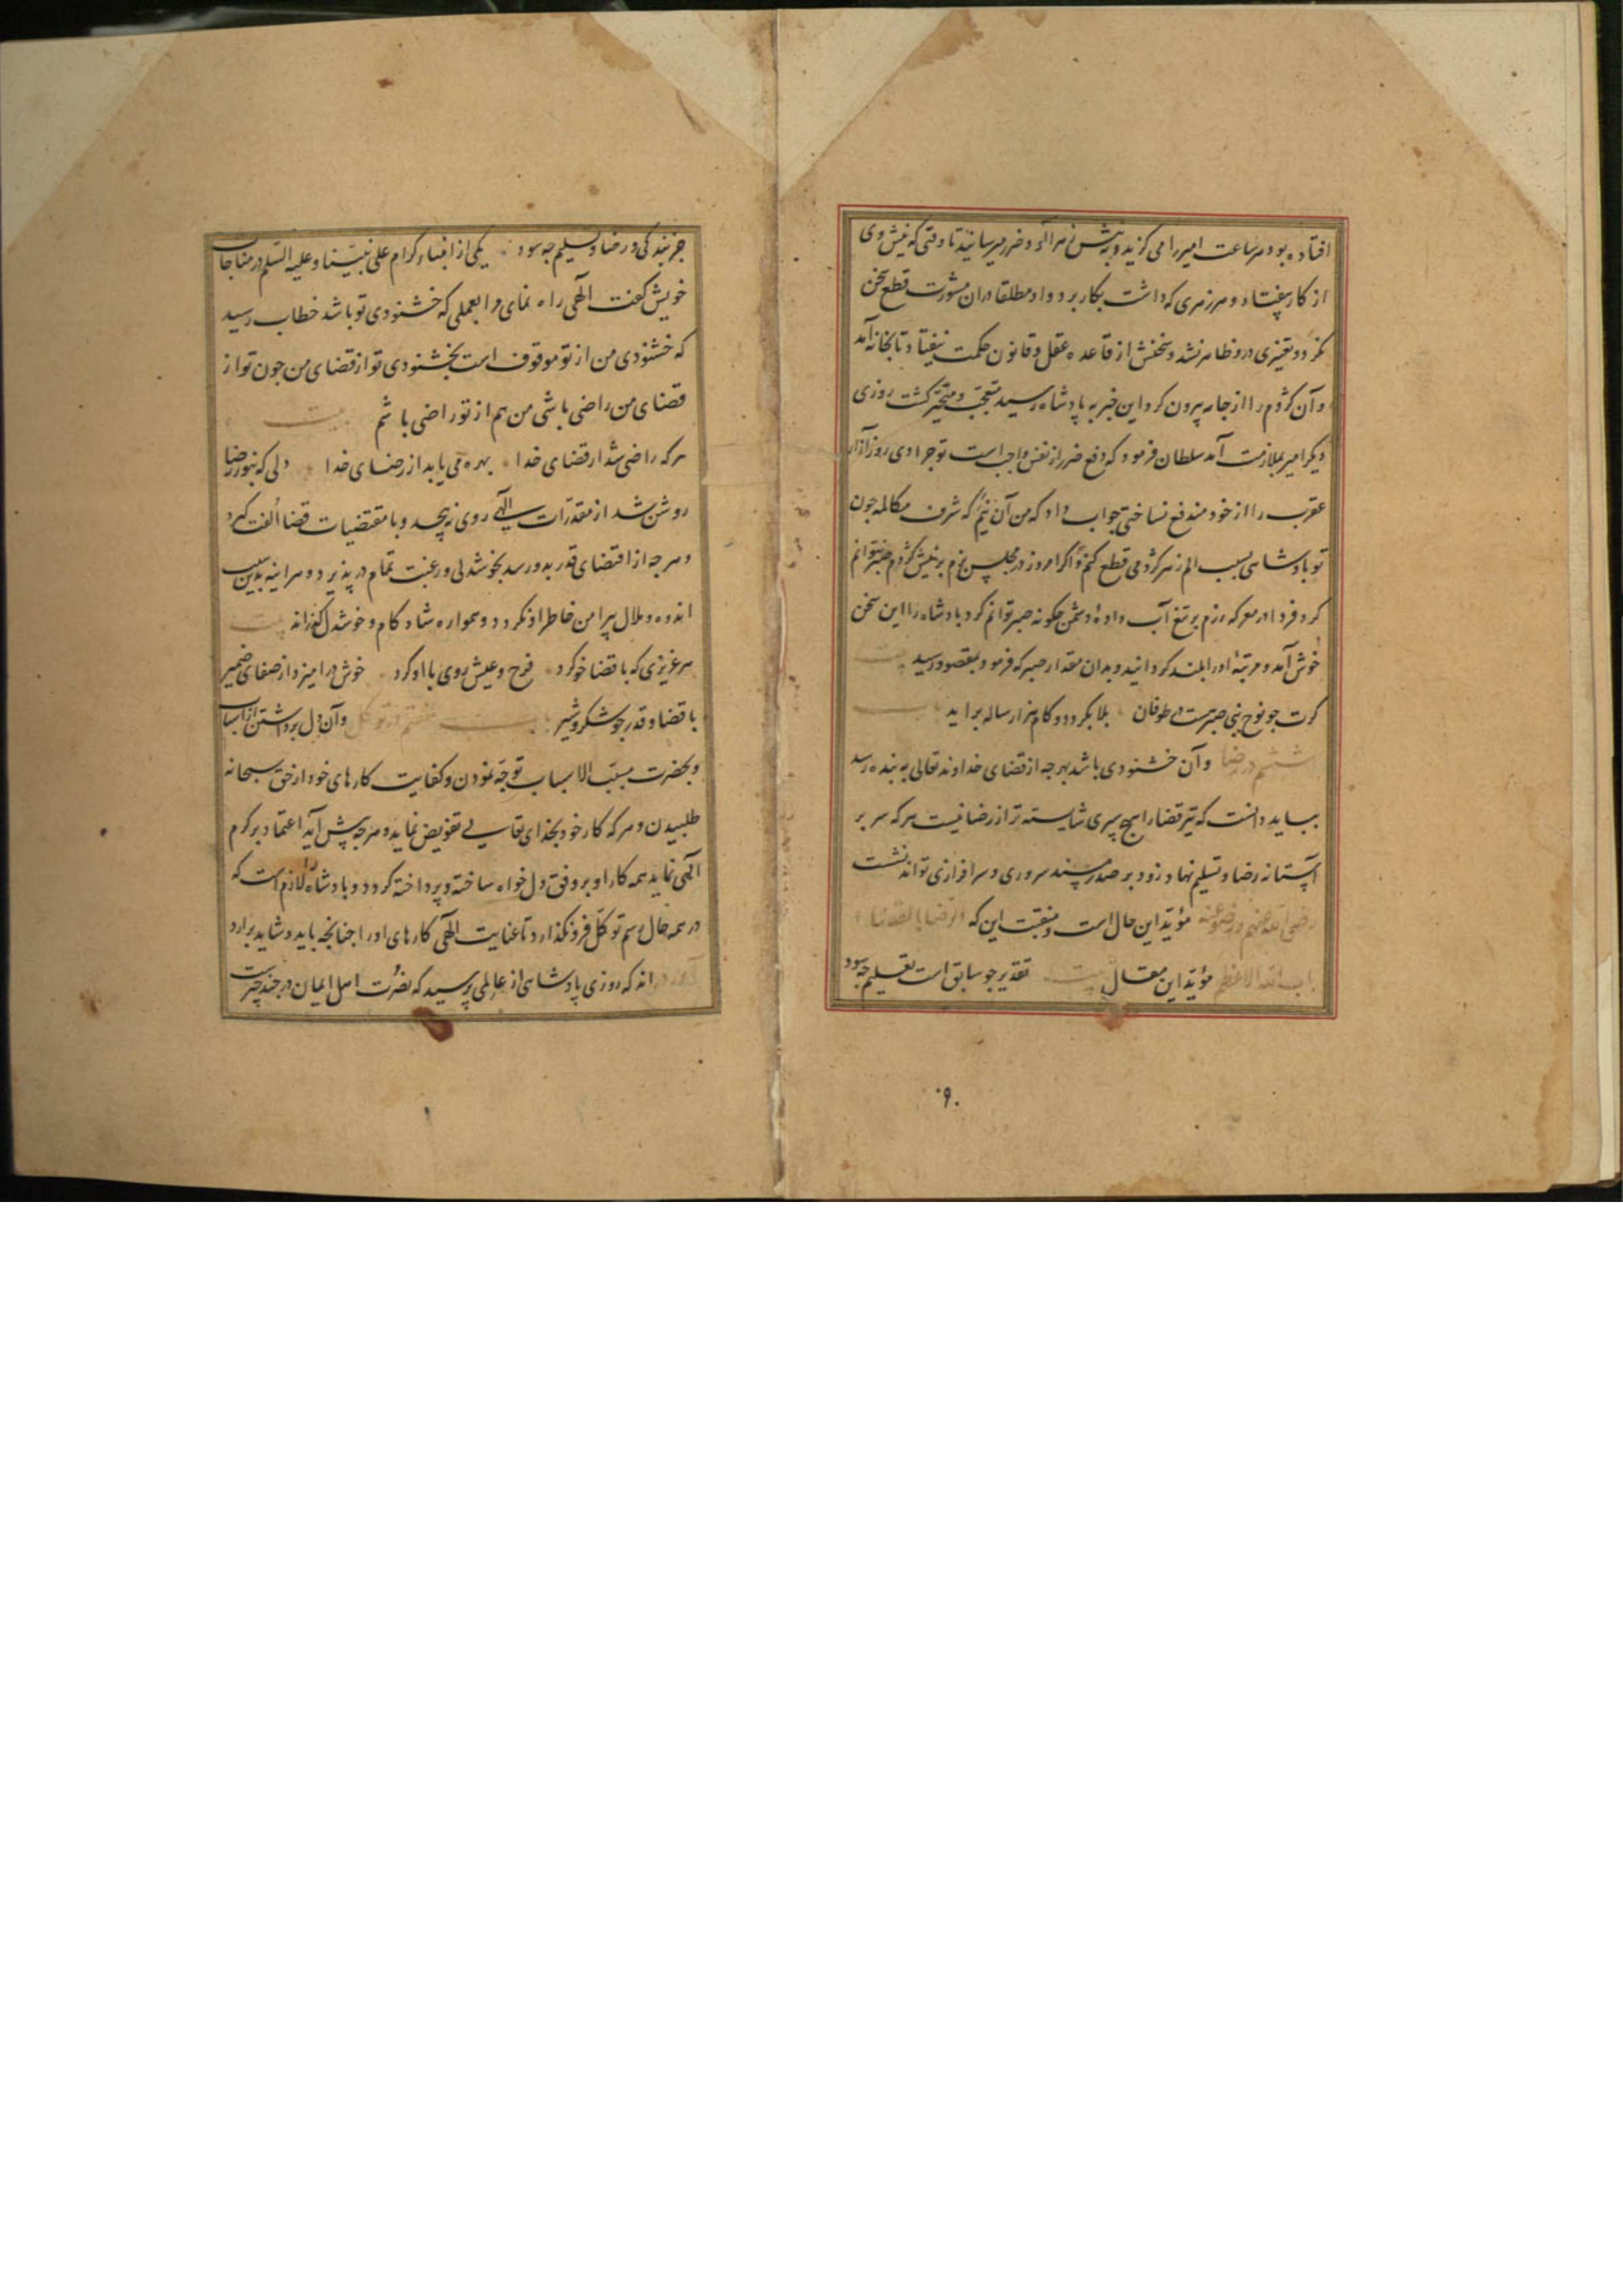 افتاده بود هر ساعت امیر را می کزید و به نیش زهرآلود ضرر میرسانید تا وقتی که نیش وی
از کار بیفتاد و هر زهری که داشت بکار برد و او مطلقا دران مشورت قطع سخن
نکرد و تغیری درو ظاهر نشد و سخنش از قاعده عقل و قانون حکمت نیفتاد تا بخانه آمد
و آن کژدم را از جامه بیرون کرد این خبر به پادشاه رسید متعجب و متحیر کشت روزی
دیکر امیر بملازمت آمد سلطان فرمود که دفع ضرر از نفس واجب است تو چرا دی روز آزار
عقرب را از خود مندفع نساختی جواب داد که من آن نیم که شرف مکالمه چون
تو پادشاهی بسبب الم زهر کژدمی قطع کنم و اکر امروز در مجلس بزم بر نیش کژدم صبر نتوانم
کرد فردا در معرکه رزم بر تیغ آب داده دشمن چکونه صبر توانم کرد پادشاه را این سخن
خوش آمد و مرتبه او را بلند کردانید و بدان مقدار صبر که فرمود بمقصود رسید بیت
کرت چو نوح نبی صبر هست در طوفان بلا بکردد و کام هزار ساله براید
ششم در رضا و آن خشنودی باشد بهرچه از قضای خداوند تعالی به بنده رسد
بباید دانست که تیر قضا را هیچ سپری شایسته تر از رضا نیست هر که سر بر
آستانه رضا و تسلیم نهاد زود بر صدر مسند سروری و سرافرازی تواند نشست
رضی الله عنهم و رضوا عنه مؤید این حال است و منقبت این که الرضا بالقضا
باب الله الاعظم مؤید این مقال بیت تقدیر چو سابق است تعلیم چه سود
جز بندکی و رضا و تسلیم چه سود یکی از انبیاء کرام علی نبینا و علیه السلم در مناجات
خویش کفت الهی راه نمای مرا بعملی که خشنودی تو باشد خطاب رسید
که خشنودی من از تو موقوف است بخشنودی تو از قضای من چون تو از
قضای من راضی باشی من هم از تو راضی باشم بیت
هر که راضی شد از قضای خدا بهره می یابد از رضای خدا دلی که بنور رضا
روشن شد از مقدرات الهی روی نپیچد و با مقتضیات قضا الفت کیرد
و هرچه از اقتضای قدر بدو رسد بخوشدلی و رغبت تمام در پذیرد و هراینه بدین سبب
اندوه و ملال پیرامن خاطر او نکردد و همواره شادکام و خوشدل کذراند بیت
هر عزیزی که با قضا خو کرد فرح و عیش روی با او کرد خوش درامیزد از صفای ضمیر
با قضا و قدر چو شکر و شیر هفتم در توکل و آن دل برداشتن از اسباب
و بحضرت مسبب الاسباب توجه نمودن و کفایت کارهای خود از حق سبحانه
طلبیدن و هر که کار خود بخدای تعالی تفویض نماید و هرچه پیش آید اعتماد بر کرم
الهی نماید همه کار او بر وفق دل خواه ساخته و پرداخته کردد و پادشاه را لازم است که
در همه حال رسم توکل فرو نکذارد تا عنایت الهی کارهای او را چنانچه باید و شاید برارد
آورده اند که روزی پادشاهی از عالمی پرسید که نصرت اهل ایمان در چند چیزست
۹۰